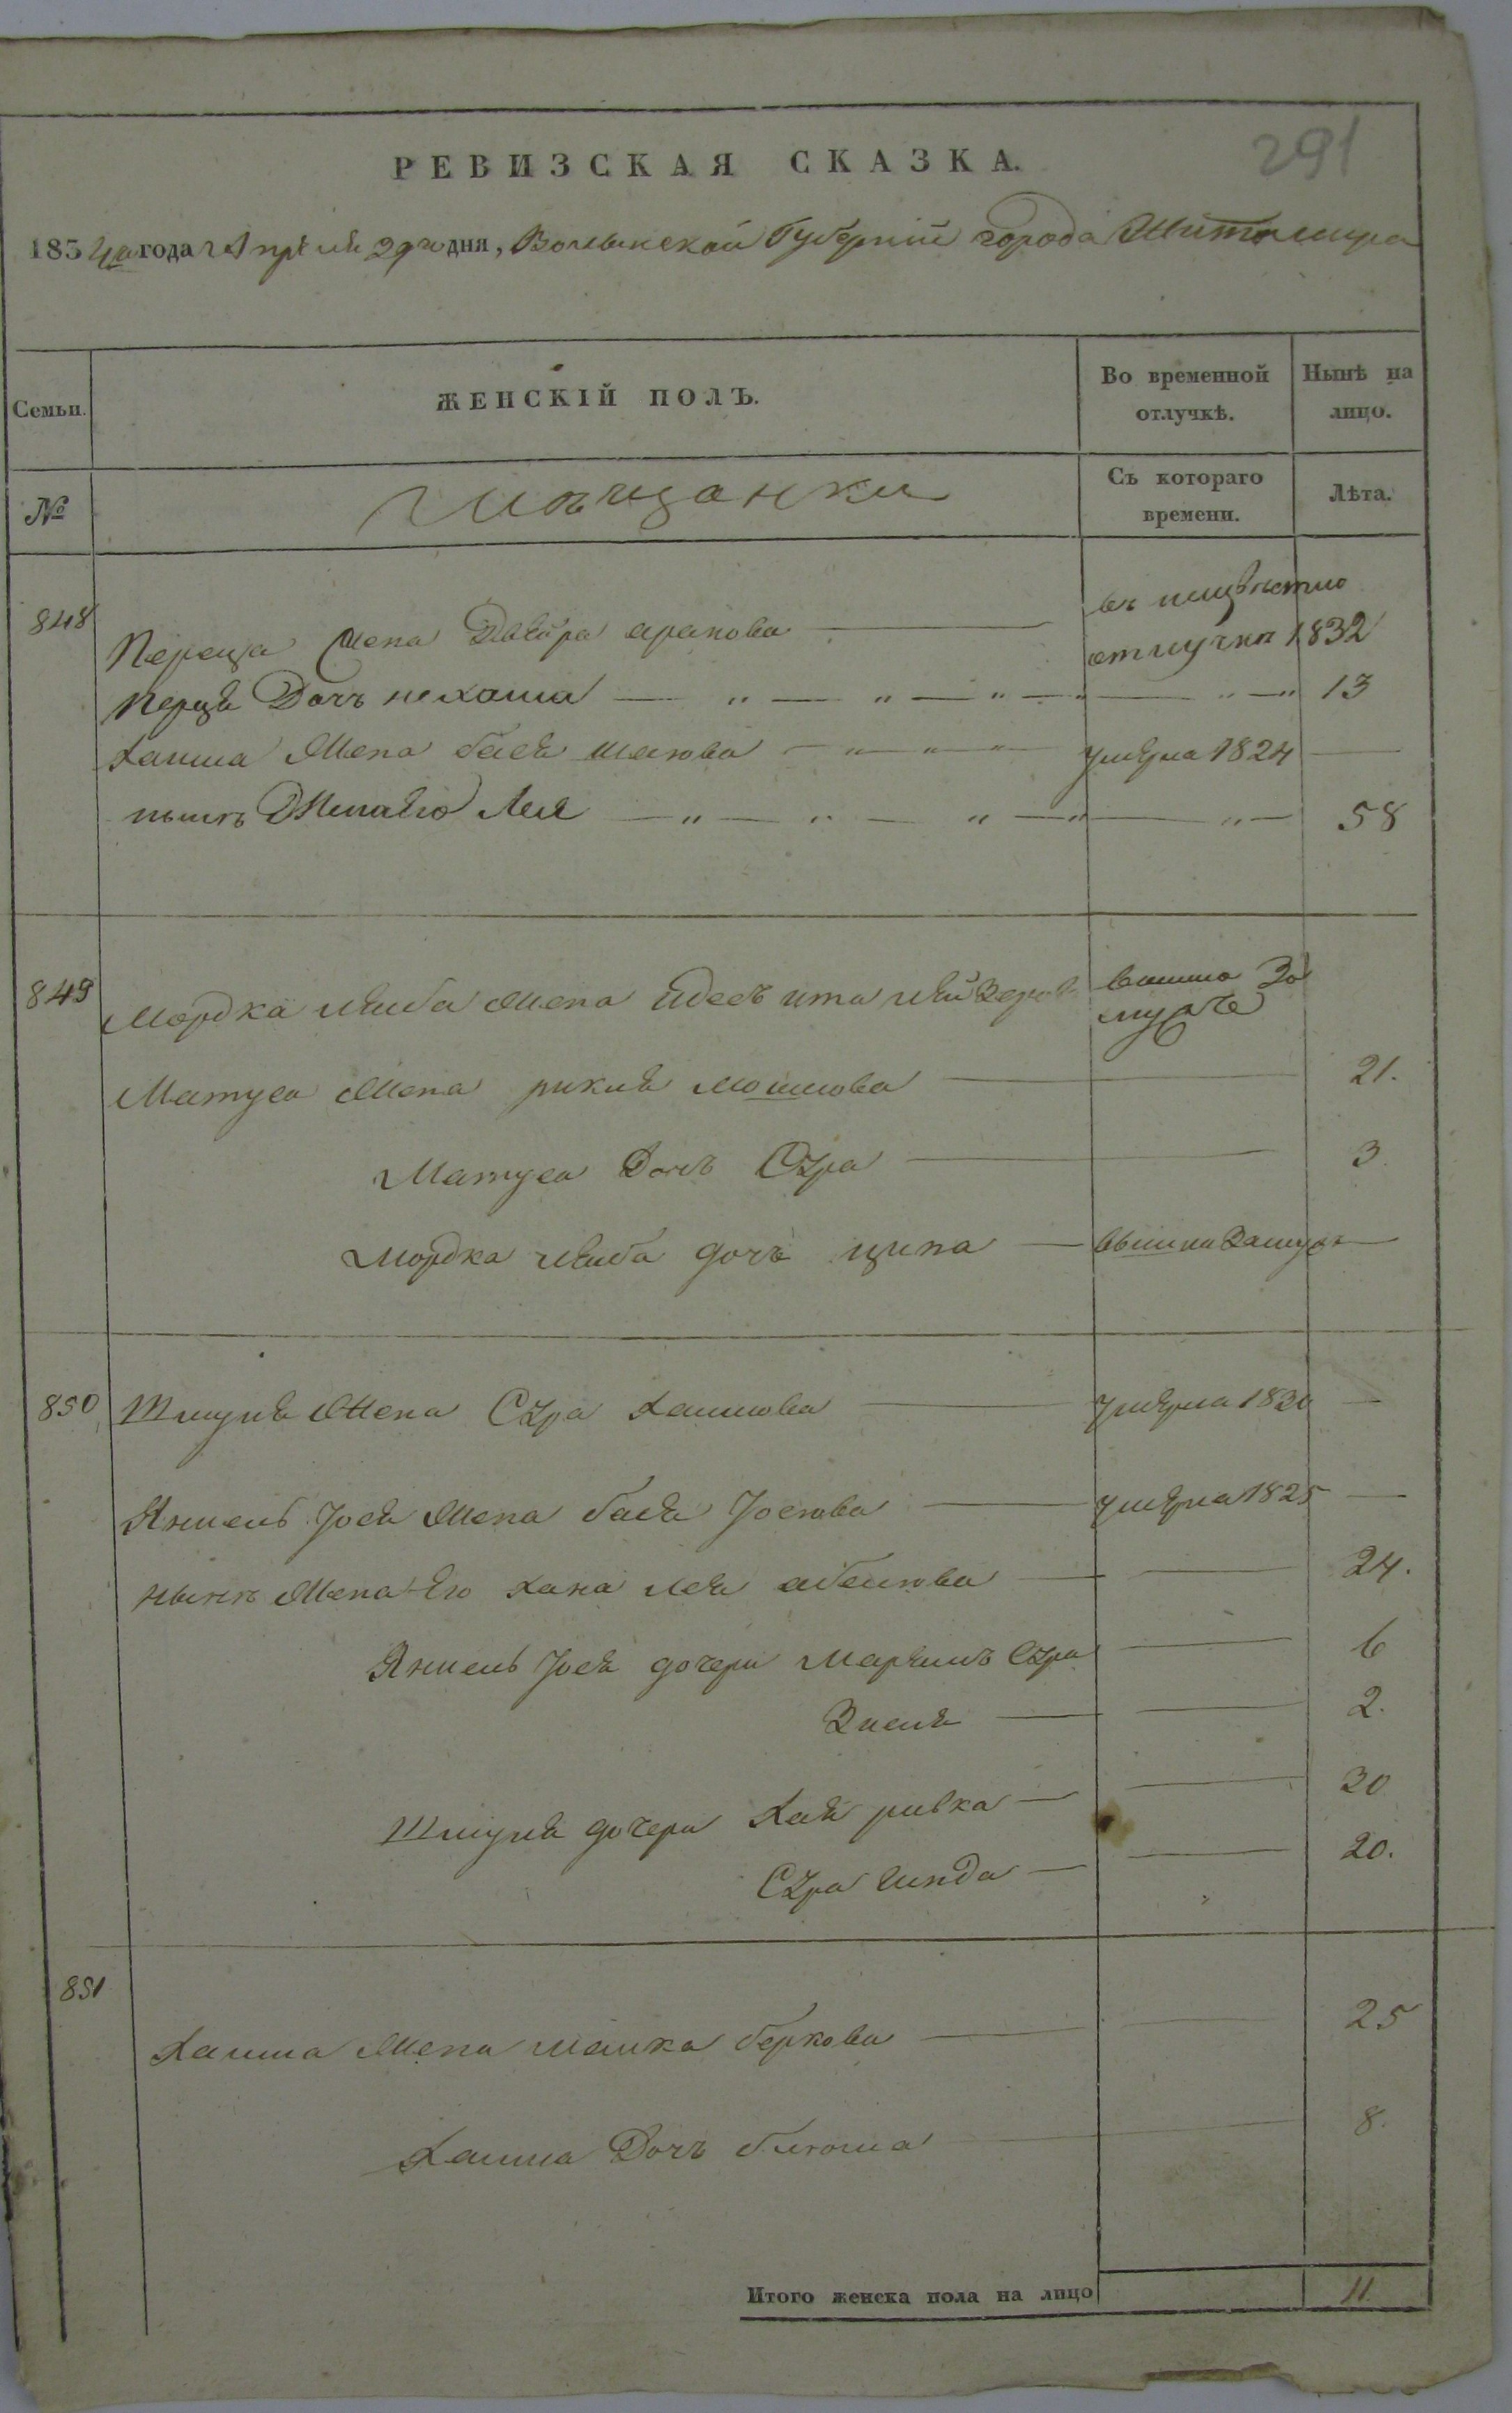 291
РЕВИЗСКАЯ СКАЗКА.
1834го года Апреля 29го дня, Волынской Губернии города Житомира
Семьи. ЖЕНСКІЙ ПОЛЪ. Во временной отлучкѣ. Нынѣ на лицо.
№ Мѣщанки Съ котораго времени. Лѣта.
848 Переца жена Двойра арапова — въ неизвѣстно отлучки 1832
Перца Дочъ нехама — " — " — " — " — " — " 13
Хаима Жена бася — " — " — " умерла 1824 —
нынѣ Жена его Лея — " — " — " — " — " — 58
849 Мордка лейба Жена идесъ ита вишла За мужъ
Матуса Жена рикля мошкова — 21.
Матуса Дочь Сура — 3.
Мордка лейба дочъ ципа — вышла Замужъ —
850 Шмуля Жена Сура Хаимова — умерла 1830 —
Янкель Іося Жена бася Іоскова — умерла 1825 —
нынѣ Жена его хана лея — 24.
Янкель Іося дочери Марямъ Сура — 6
Зисля — 2.
Шмуля дочери Хая ривка — 30
Сура — 20.
851 Хаима Жена малка беркова — 25
Хаима Дочъ блюма — 8.
Итого женска пола на лицо 11.